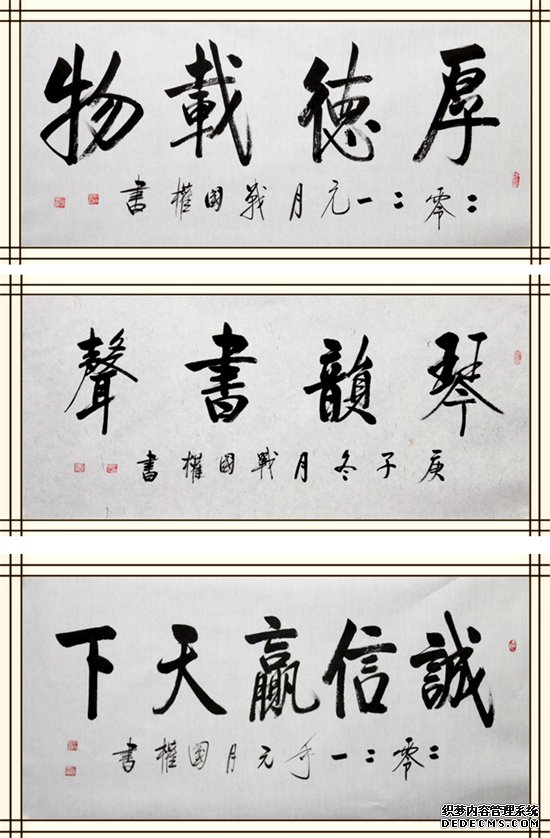 厚德載物
二零二一元月戰国權書
琴韻書聲
庚子冬月戰國權書
誠信贏天下
二零二一年元月國權書
织梦内容管理系统
DEDECMS.COM